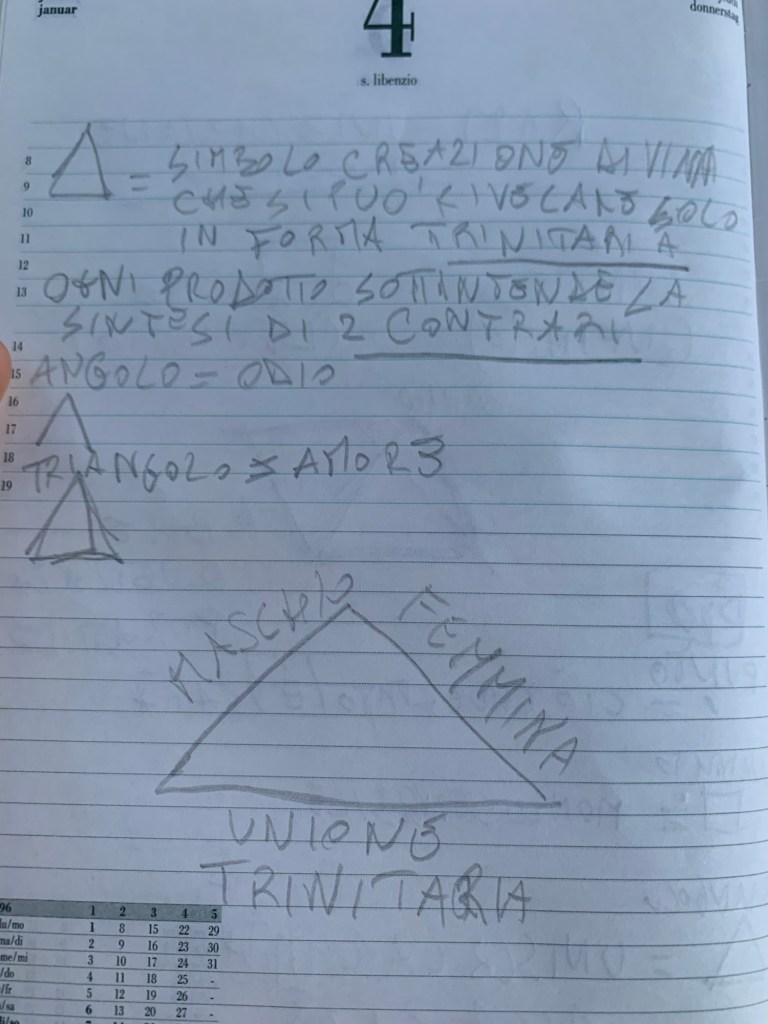 januar
4
donnerstag
s. libenzio
8
9
10
11
12
13
14
15
16
17
18
19
= SIMBOLO CREAZIONE DIVINA
CHE SI PUO' RIVELARE SOLO
IN FORMA TRINITARIA
OGNI PRODOTTO SOTTINTENDE LA
SINTESI DI 2 CONTRARI
ANGOLO = ODIO
TRIANGOLO = AMORE
MASCHIO
FEMMINA
UNIONE
TRINITARIA
96 1 2 3 4 5
lu/mo 1 8 15 22 29
ma/di 2 9 16 23 30
me/mi 3 10 17 24 31
/do 4 11 18 25 -
/fr 5 12 19 26 -
/sa 6 13 20 27 -